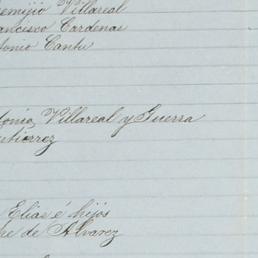 Remijio Villareal
Francisco Cardenas
Antonio Cantu
Antonia Villareal y Guerra
Gutierrez
Elias é hijos
de Alvarez